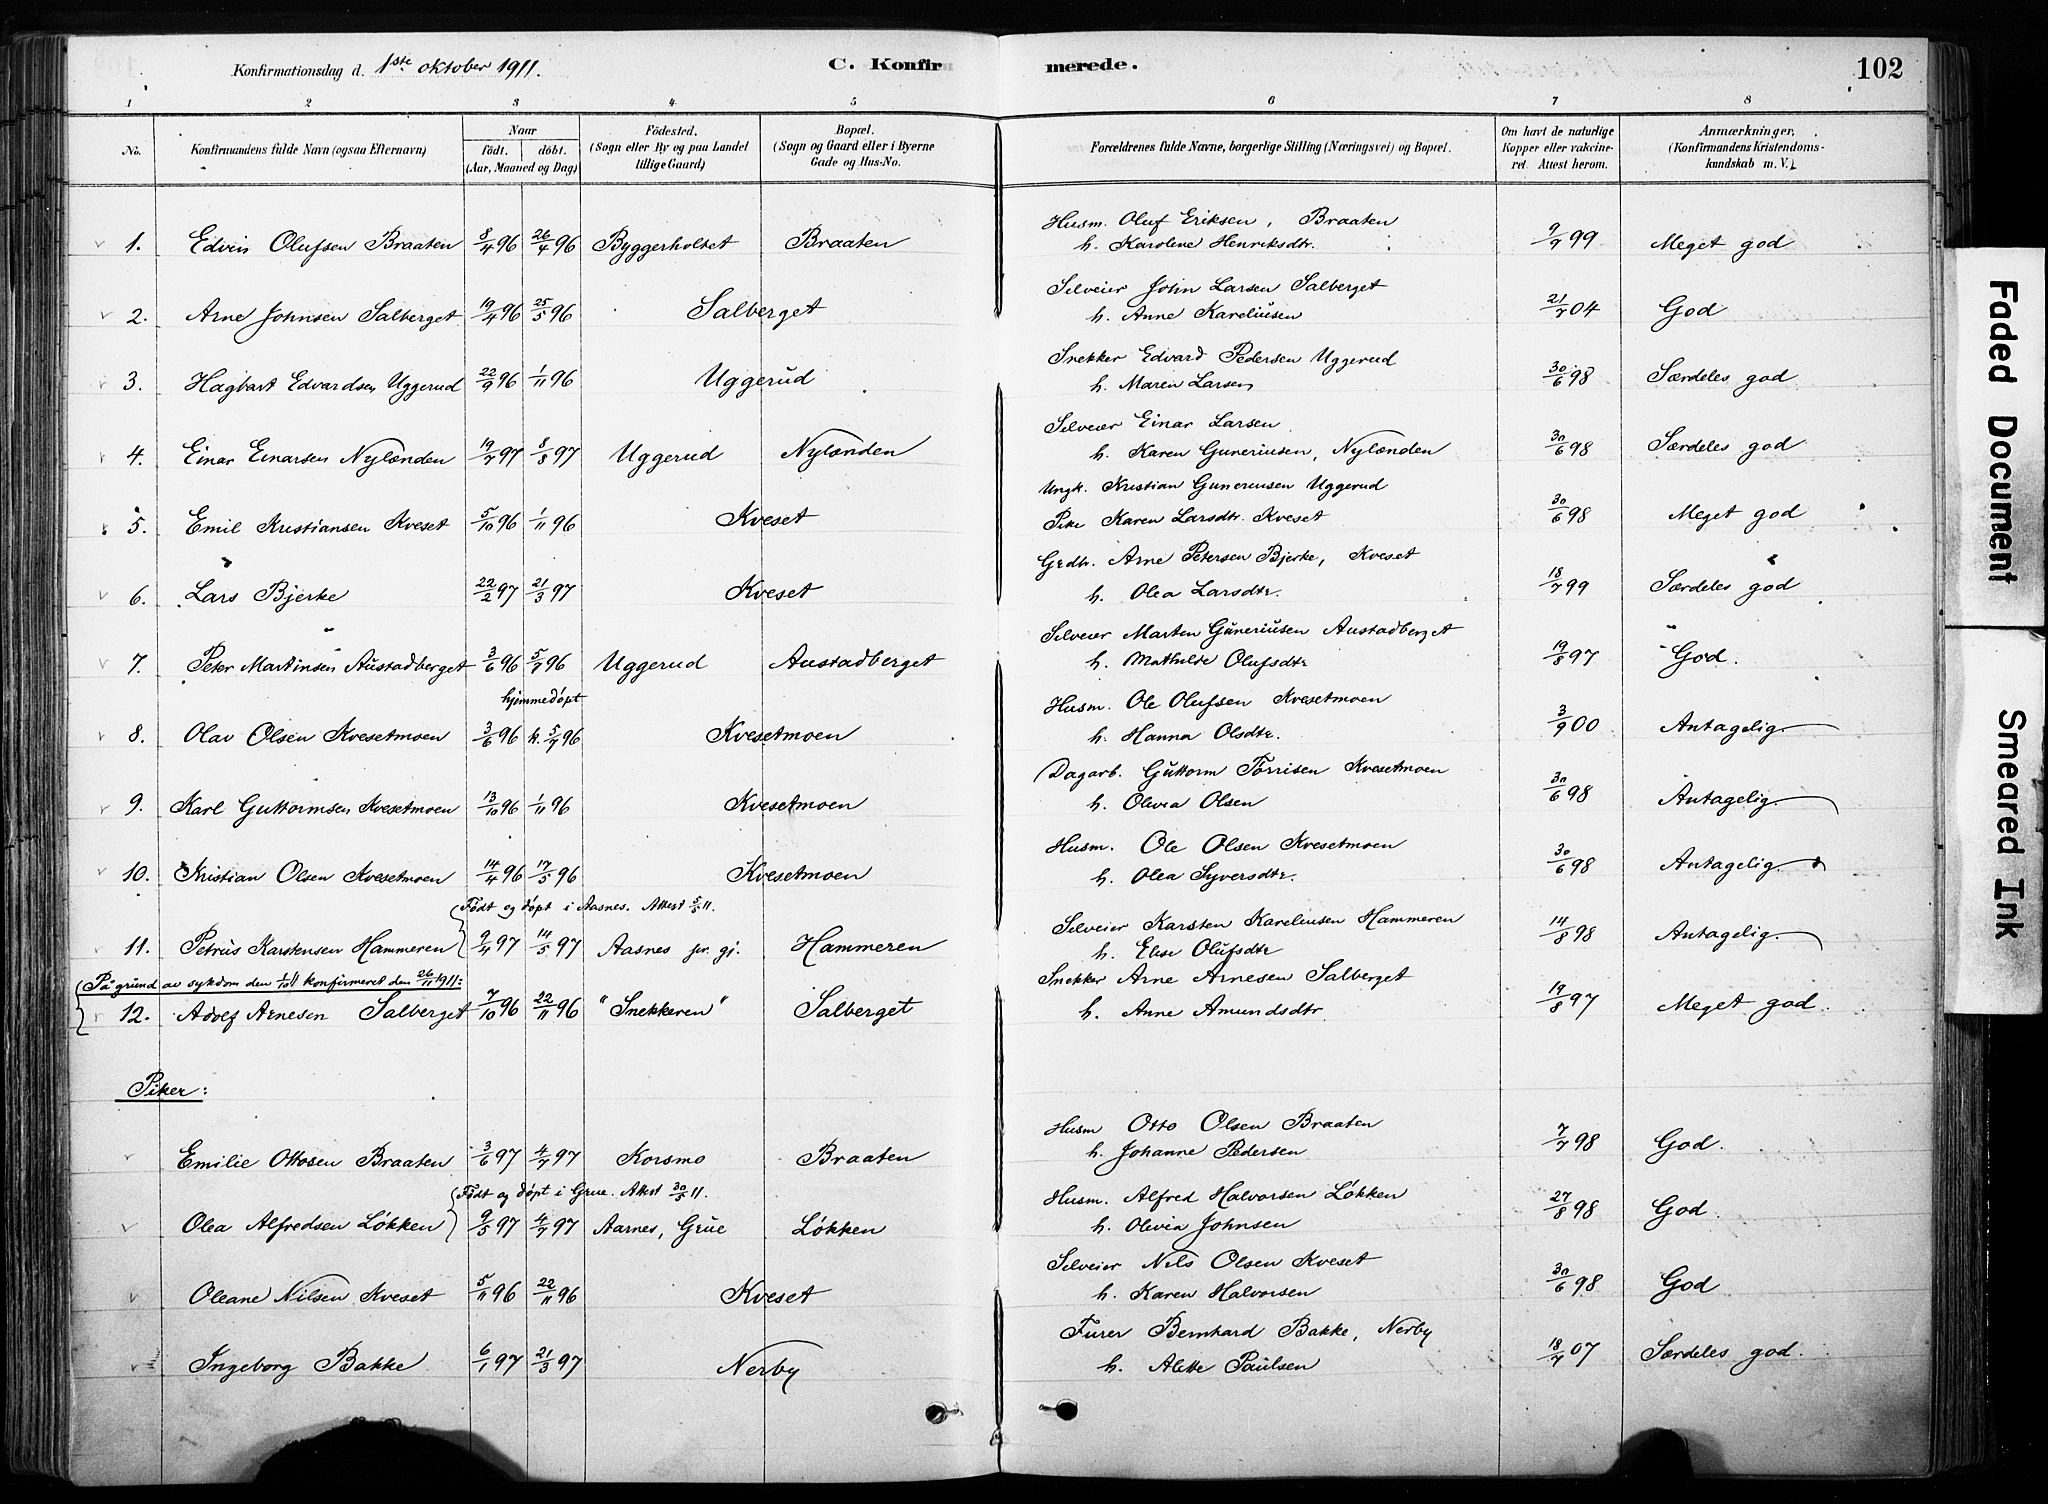 Konfirmationsdag d. 1ste oktober 1911. C. Konfirmerede. 102
1 2 3 4 5 6 7 8
No. Konfirmandens fulde Navn (ogsaa Efternavn) Naar födt. döbt. (Aar, Maaned og Dag) Födested. (Sogn eller By og paa Landet tillige Gaard) Bopæl. (Sogn og Gaard eller i Byerne Gade og Hus-No. Forældrenes fulde Navne, borgerlige Stilling (Næringsvei) og Bopæl. Om havt de naturlige Kopper eller vakcineret. Attest herom. Anmærkninger, (Konfirmandens Kristendomskundskab m. V.)
Husm. Oluf Eriksen, Braaten
1. Edvin Olufsen Braaten 8/4 96 26/4 96 Byggerholtet Braaten h. Karolene Henriksdtr. 9/7 99 Meget god
Selveier John Larsen Salberget
2. Arne Johnsen Salberget 19/4 96 25/5 96 Salberget h. Anne Kareliusen 21/7 04 God
Snekker Edvard Pedersen Uggerud
3. Hagbart Edvardsen Uggerud 22/9 96 1/11 96 Uggerud h. Maren Larsen 30/6 98 Særdeles god
Selveier Einar Larsen
4. Einar Einarsen Nylænden 19/7 97 8/8 97 Uggerud Nylænden h. Karen Guneriusen, Nylænden 30/6 98 Særdeles god
Ungk. Kristian Guneriusen Uggerud
5. Emil Kristiansen Kveset 5/10 96 1/11 96 Kveset Pike Karen Larsdtr. Kveset 30/6 98 Meget god
Grdbr. Arne Petersen Bjerke, Kveset
6. Lars Bjerke 22/2 97 21/3 97 Kveset h. Olea Larsdtr. 18/7 99 Særdeles god
Selveier Marten Guneriusen Austadberget
7. Peter Martinsen Austadberget 3/6 96 5/7 96 Uggerud Austadberget h. Mathilde Olufsdtr 19/8 97 God.
hjemmedöpt Husm. Ole Olufsen Kvesetmoen
8. Olav Olsen Kvesetmoen 3/6 96 k. 5/7 96 Kvesetmoen h. Hanna Olsdtr. 3/9 00 Antagelig
Dagarb. Guttorm Torrisen Kvesetmoen
9. Karl Guttormsen Kvesetmoen 13/10 96 1/11 96 Kvesetmoen h. Olivia Olsen 30/6 98 Antagelig
Husm. Ole Olsen Kvesetmoen
10. Kristian Olsen Kvesetmoen 14/4 96 17/5 96 Kvesetmoen h. Olea Syversdtr. 30/6 98 Antagelig
Födt og döpt i Aasnes. Attest 5/5 11. Selveier Karsten Kareliusen Hammeren
11. Petrus Karstensen Hammeren 9/4 97 14/5 97 Aasnes pr. gj. Hammeren h. Elise Olufsdtr 14/8 98 Antagelig.
(På grund av sykdom den 1/10 11 konfirmeret den 26/11 1911: Snekker Arne Arnesen Salberget
12. Adolf Arnesen Salberget 7/10 96 22/11 96 "Snekkeren" Salberget h. Anne Amundsdtr 19/8 97 Meget god.
Piker:
Husm Otto Olsen Braaten
Emilie Ottosen Braaten 3/6 97 4/7 97 Korsmo Braaten h. Johanne Pedersen 7/7 98 God.
Födt og döpt i Grue. Attest 30/5 11. Husm. Alfred Halvorsen Løkken
Olea Alfredsen Løkken 9/5 97 4/7 97 Aarnes, Grue Løkken h. Olivia Johnsen 27/8 98 God.
Selveier Nils Olsen Kveset
Oleane Nilsen Kveset 5/11 96 22/11 96 Kveset h. Karen Halvorsen 30/6 98 God
Furer Bernhard Bakke, Nerby
Ingeborg Bakke 6/1 97 21/3 97 Nerby h. Alette Paulsen 18/7 07 Særdeles god.
Faded Document
Smeared Ink